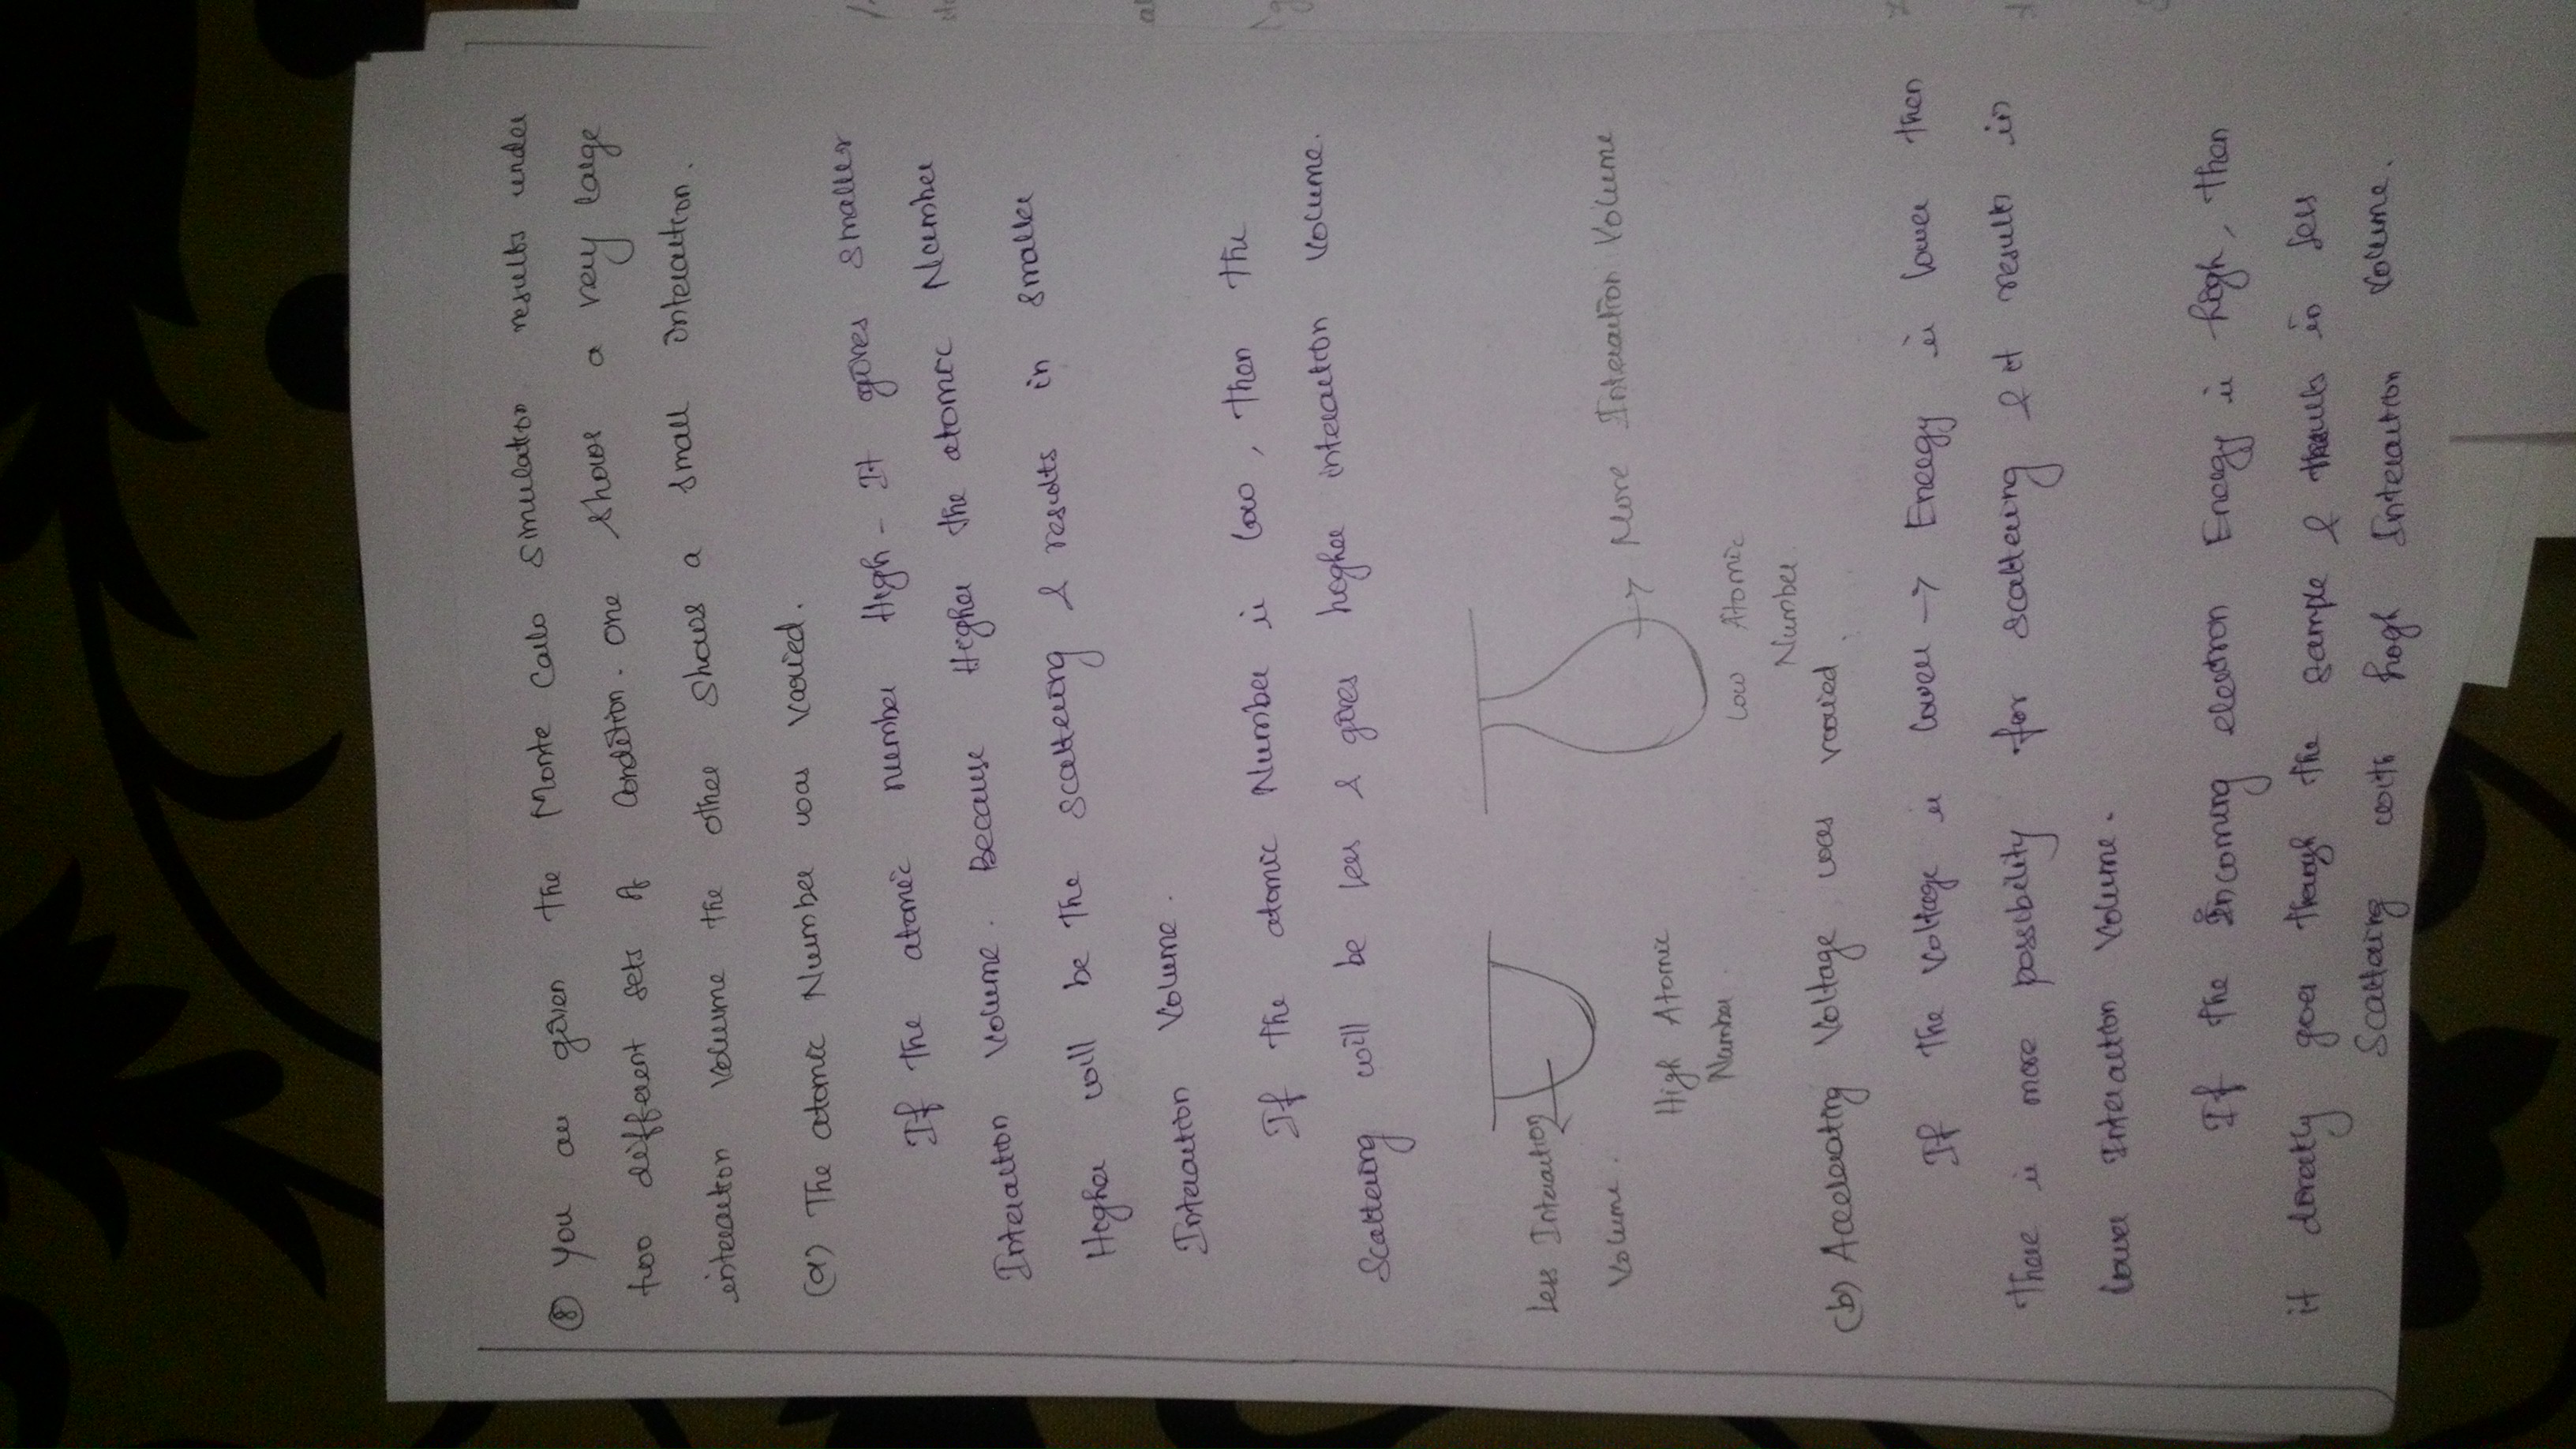 ⑧ You are given the Monte Carlo Simulation results under
two different sets of Condition. One shows a very large
interaction Volume the other shows a small Interaction.
(a) The atomic Number was varied.
If the atomic number High - It gives smaller
Interaction Volume. Because Higher the atomic Number
Higher will be the scattering & results in smaller
Interaction Volume.
If the atomic Number is low, then the
Scattering will be less & gives higher interaction Volume.
Less Interaction
Volume.
High Atomic
Number
More Interaction Volume
Low Atomic
Number
(b) Accelerating Voltage was varied
If the Voltage is lower → Energy is lower then
There is more possibility for scattering & it results in
lower Interaction Volume.
If the Incoming electron Energy is high, then
it directly goes through the sample & results in less
Scattering with high Interaction Volume.